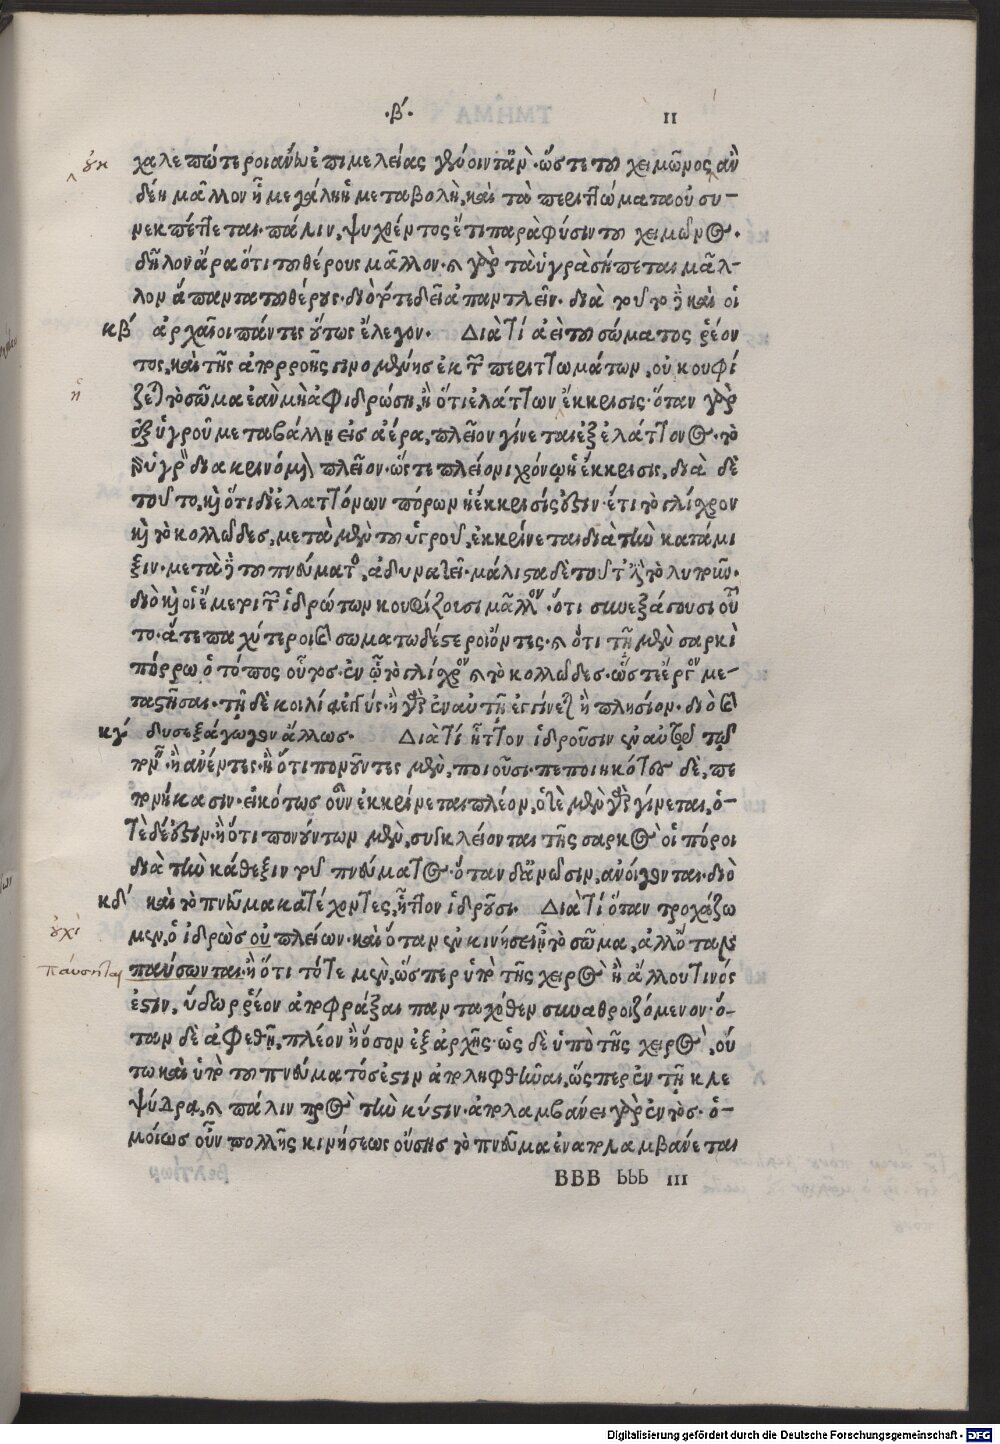 ·β´· 11
χαλεπώτεροι αὐτῶ ἐπιμελείας γένοιντ ἄν· ὥστε τοῦ χειμῶνος ἂν
οὐκ
δέη μᾶλλον ἢ μεγάλη ἡ μεταβολὴ, καὶ τὰ περιττώματα οὐ συ-
νεκπέττεται· πάλιν, ψυχθέντος ἔτι παρὰ φύσιν τοῦ χειμῶνος·
δῆλον ἄρα ὅτι τοῦ θέρους μᾶλλον· καὶ γὰρ τὰ ὑγρὰ σήπεται μᾶλ-
λον ἅπαντα τοῦ θέρους· διὸ τότε δεῖ ἀπαντλεῖν· διὰ τοῦτο δὲ καὶ οἱ
κβ´ ἀρχαῖοι πάντες οὕτως ἔλεγον· Διὰ τί ἀεὶ τοῦ σώματος ῥέον
τος, καὶ τῆς ἀπορροῆς γινομένης ἐκ τῶν περιττωμάτων, οὐ κουφί
ἢ
ζεται τὸ σῶμα ἐὰν μὴ ἀφιδρώση, ἢ ὅτι ἐλάττων ἔκκρισις· ὅταν γὰρ
ἐξ ὑγροῦ μεταβάλλη εἰς ἀέρα, πλεῖον γίνεται ἐξ ἐλάττονος· τὸ
γὰρ ὑγρὸν διακρινόμενον πλεῖον· ὥστε πλείονι χρόνω ἡ ἔκκρισις, διὰ δὲ
τοῦτο, καὶ ὅτι δι' ἐλαττόνων πόρων ἡ ἔκκρισίς ἐστιν· ἔτι τὸ γλίσχρον
καὶ τὸ κολλῶδες, μετὰ μὲν τοῦ ὑγροῦ, ἐκκρίνεται διὰ τὴν κατάμι
ξιν· μετὰ δὲ τοῦ πνεύματος, ἀδυνατεῖ· μάλιστα δὲ τοῦτ' ἐστὶ τὸ λυποῦν·
διὸ καὶ οἱ ἔμετοι τῶν ἱδρώτων κουφίζουσι μᾶλλον· ὅτι συνεξάγουσι τοῦ
το· ἅτε παχύτεροι καὶ σωματωδέστεροι ὄντες· καὶ ὅτι τῆ μὲν σαρκὶ
πόρρω ὁ τόπος οὗτος· ἐν ᾧ τὸ γλίσχρον καὶ τὸ κολλῶδες· ὥστε ἔργον με-
ταστῆσαι· τῆ δὲ κοιλία ἐγγύς· ἢ γὰρ ἐν αὐτῆ ἐγγίνεται ἢ πλησίον· διὸ καὶ
κγ´ δυσεξάγωγον ἄλλως· Διὰ τί ἧττον ἱδροῦσιν ἐν αὐτῷ τῷ
πονεῖν ἢ ἀνέντες· ἢ ὅτι πονοῦντες μὲν, ποιοῦσι· πεποιηκότες δὲ, πε
πονήκασιν· εἰκότως οὖν ἐκκρίνεται πλέον, ὁτὲ μὲν γὰρ γίνεται, ὁ-
τὲ δέ ἐστιν, ἢ ὅτι πονούντων μὲν, συγκλείονται τῆς σαρκὸς οἱ πόροι
διὰ τὴν κάθεξιν τοῦ πνεύματος· ὅταν δ' ἀνῶσιν, ἀνοίγονται· διὸ
κδ´ καὶ τὸ πνεῦμα κατέχοντες, ἧττον ἱδροῦσι· Διὰ τί ὅταν τροχάζω
οὐχὶ
μεν, ὁ ἱδρὼς οὐ πλείων· καὶ ὅταν ἐν κινήσει ᾖ τὸ σῶμα, ἀλλ' ὅταν
παύσηται
παύσωνται· ἢ ὅτι τότε μὲν, ὥσπερ ὑπὸ τῆς χειρὸς ἢ ἄλλου τινός
ἐστιν, ὕδωρ ῥέον ἀποφράξαι πανταχόθεν συναθροιζόμενον· ὅ-
ταν δὲ ἀφεθῆ, πλέον ἢ ὅσον ἐξ ἀρχῆς· ὡς δὲ ὑπὸ τῆς χειρὸς, οὕ
τω καὶ ὑπὸ τοῦ πνεύματός ἐστιν ἀποληφθῆναι, ὥσπερ ἐν τῆ κλε
ψύδρα, καὶ πάλιν πρὸς τὴν κύστιν· ἀπολαμβάνει γὰρ ἐντός· ὁ-
μοίως οὖν πολλῆς κινήσεως οὔσης τὸ πνεῦμα ἐναπολαμβάνεται
BBB bbb III
Digitalisierung gefördert durch die Deutsche Forschungsgemeinschaft · DFG